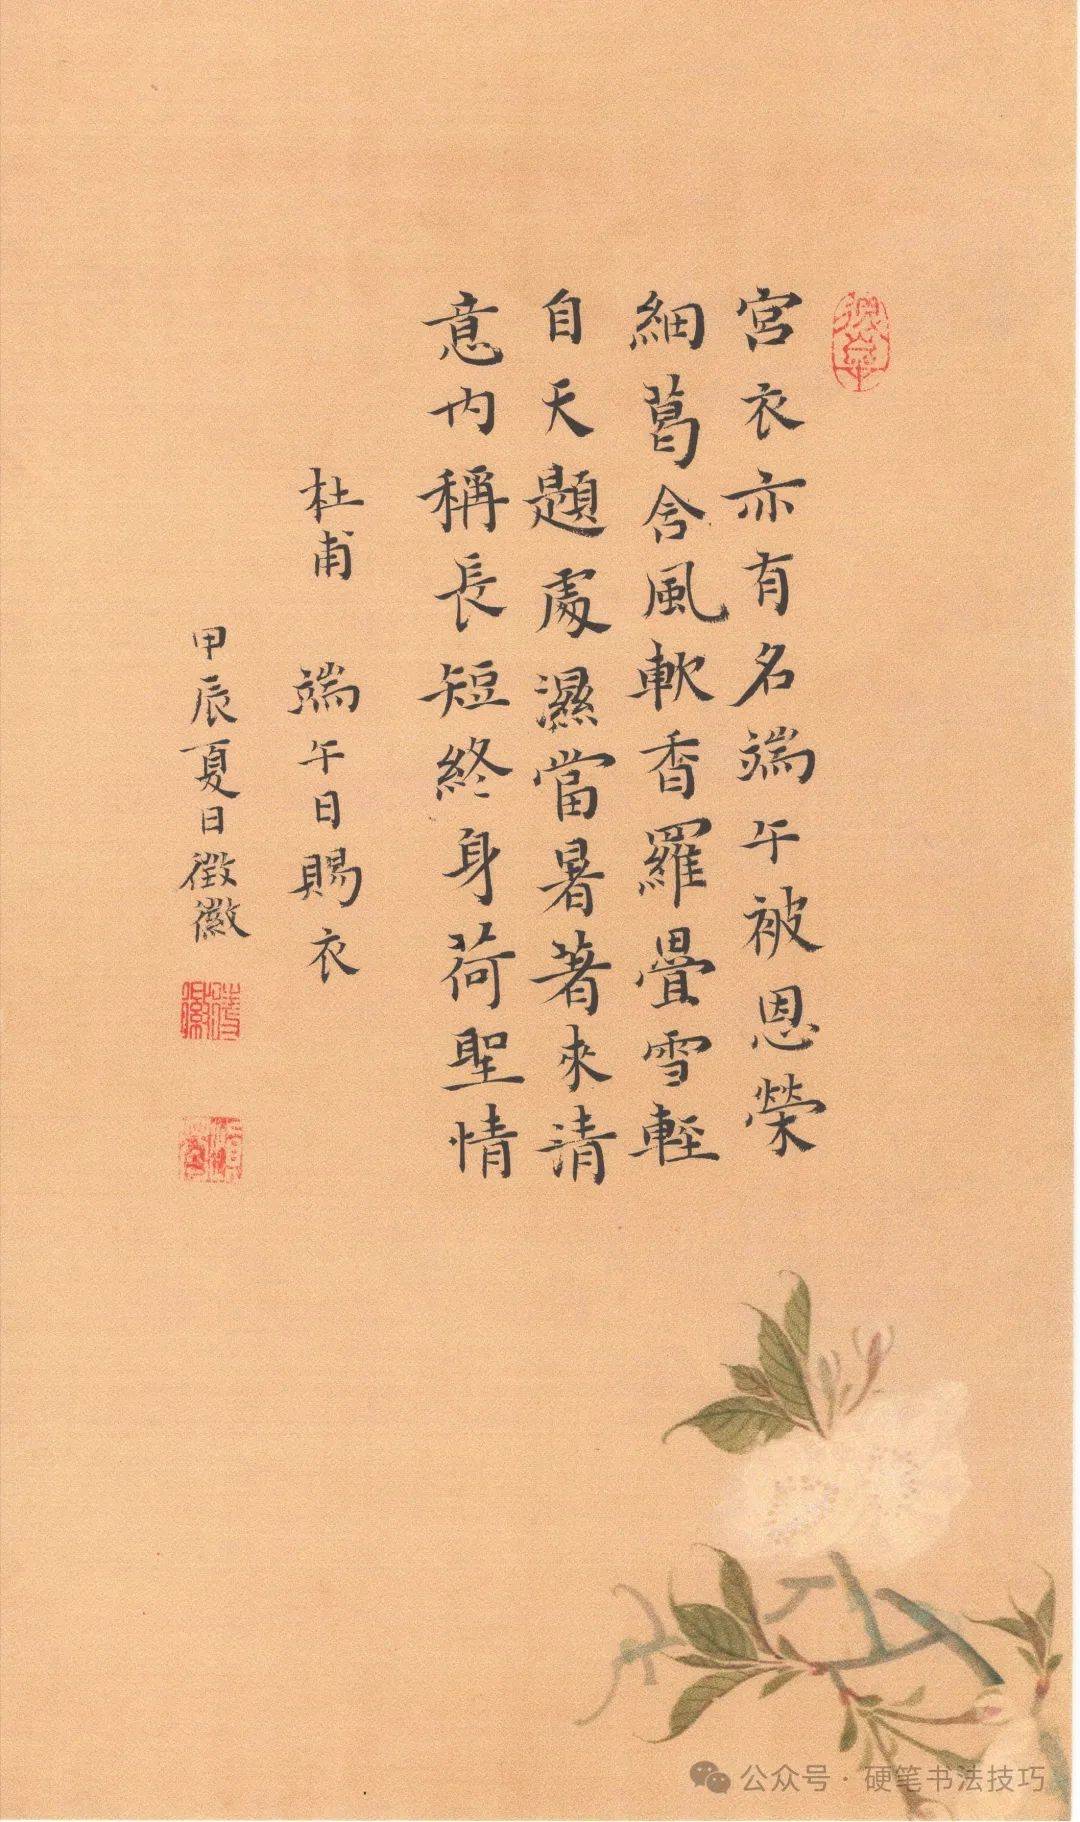 宮衣亦有名端午被恩榮
細葛含風軟香羅疊雪輕
自天題處濕當暑著來清
意內稱長短終身荷聖情
杜甫 端午日賜衣
甲辰夏日徵徽
公众号 · 硬笔书法技巧